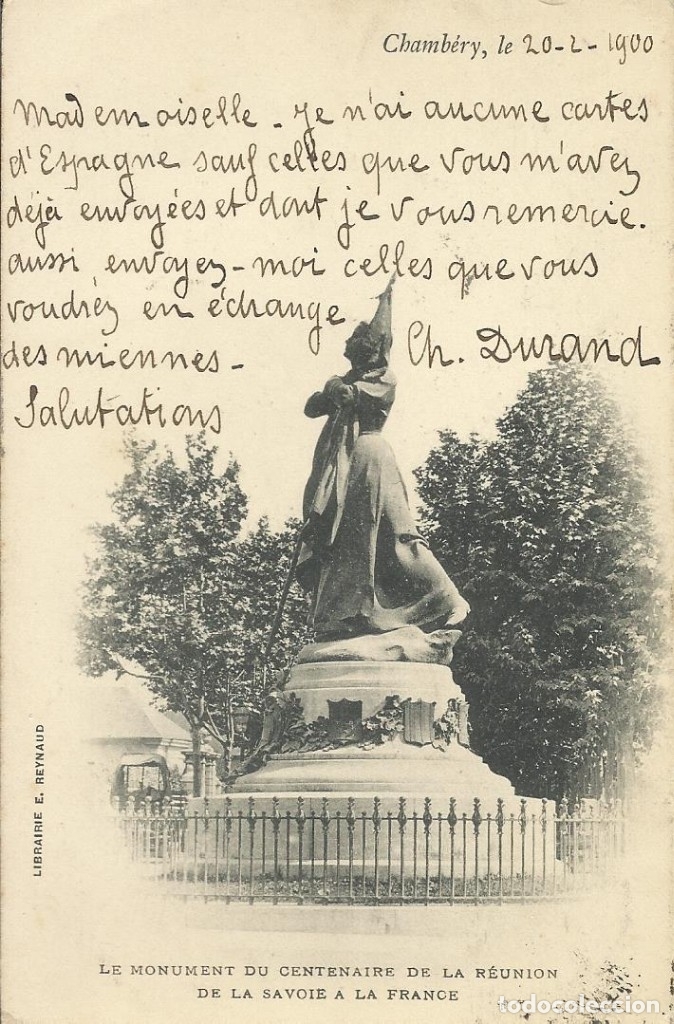 Chambéry, le 20-2-1900
Mademoiselle. Je n'ai aucune cartes
d'Espagne sauf celles que vous m'avez
déjà envoyées et dont je vous remercie.
aussi envoyez-moi celles que vous
voudrez en échange
des miennes-
Ch. Durand
Salutations
LIBRAIRIE E. REYNAUD
LE MONUMENT DU CENTENAIRE DE LA RÉUNION
DE LA SAVOIE A LA FRANCE
todocoleccion